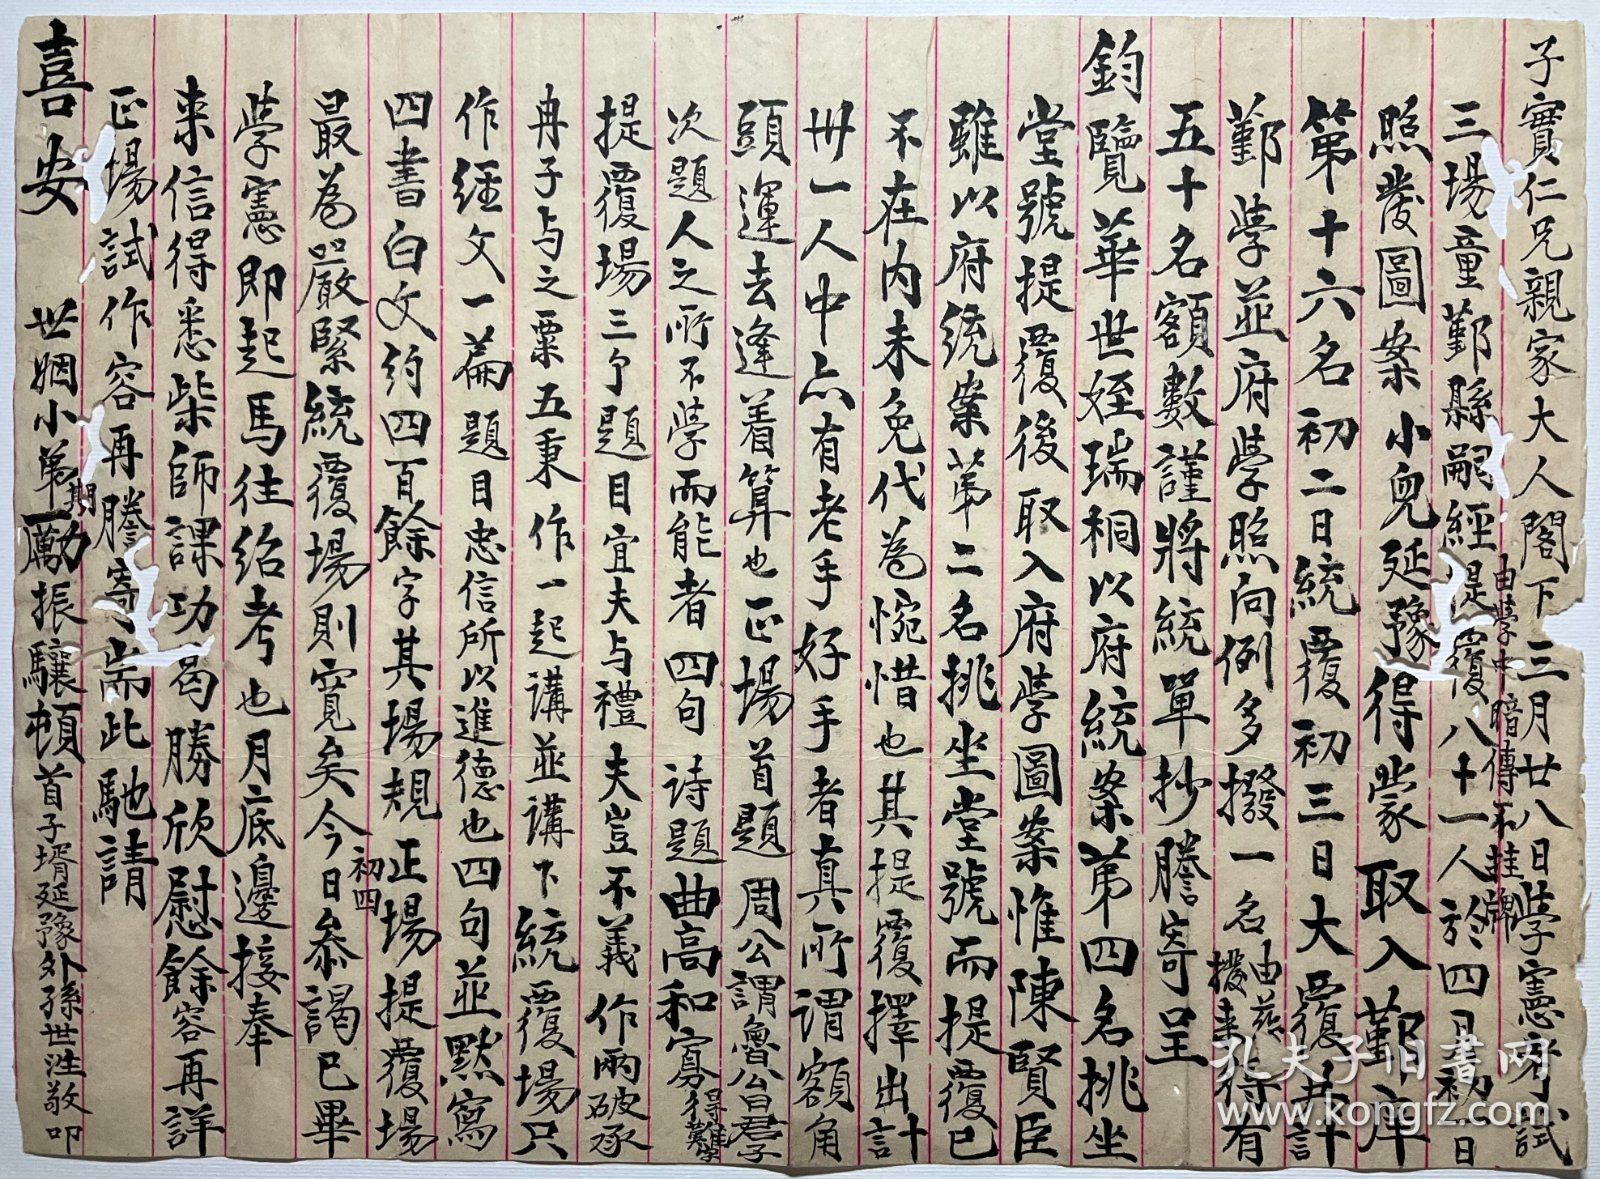 子實仁兄親家大人閣下三月廿八日學憲考試
三場童鄞縣嗣經提覆八十一人於四月初日
由學中暗傳不掛牌
照發圖案小兒延豫得蒙取入鄞庠
第十六名初二日統覆初三日大覆共計
鄞學並府學照向例多撥一名
由慈撥來
得有
五十名額數謹將統單抄謄寄呈
鈞覽華世姪瑞桐以府統案第四名挑坐
堂號提覆後取入府學圖案惟陳賢臣
雖以府統案第二名挑坐堂號而提覆已
不在内未免代為惋惜也其提覆擇出計十
卅一人中亦有老手好手者真所謂額角
頭運去逢着算也正場首題周公謂魯公曰君子
次題人之所不學而能者四句詩題曲高和寡
得難字
提覆場三个題目宜夫与禮夫豈不義作兩破承
冉子与之粟五秉作一起講並講下統覆場只
作經文一篇題目忠信所以進德也四句並默寫
四書白文約四百餘字其場規正場提覆場
最為嚴緊統覆場則寬矣今日叅謁已畢
初四
學憲即起馬往紹考也月底邊接奉
来信得悉柴師課功曷勝欣慰餘容再詳
正場試作容再謄寄耑此馳請
喜安 世姻小弟勵振驤頓首子壻延豫外孫世泩敬叩
期